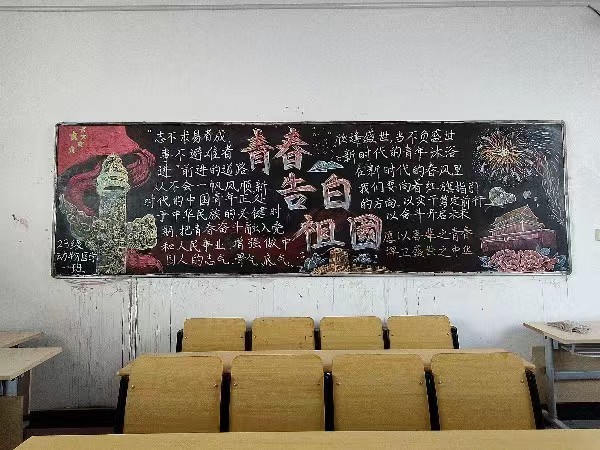 "志不求易者成
事不避难者
进"前进的道路
从不会一帆风顺新
时代的中国青年正处
于中华民族的关键时
期,把青春奋斗融入党
和人民事业,增强做中
国人的志气、骨气、底气。
23级
动物医学
一班
青春
告白
祖國
逢盛世,当不负盛世
新时代的青年沐浴
在新时代的春风里
我们要向着红旗指引
的方向,以实干笃定前行
以奋斗开启未来
愿以吾辈之青春
捍卫盛世之中华